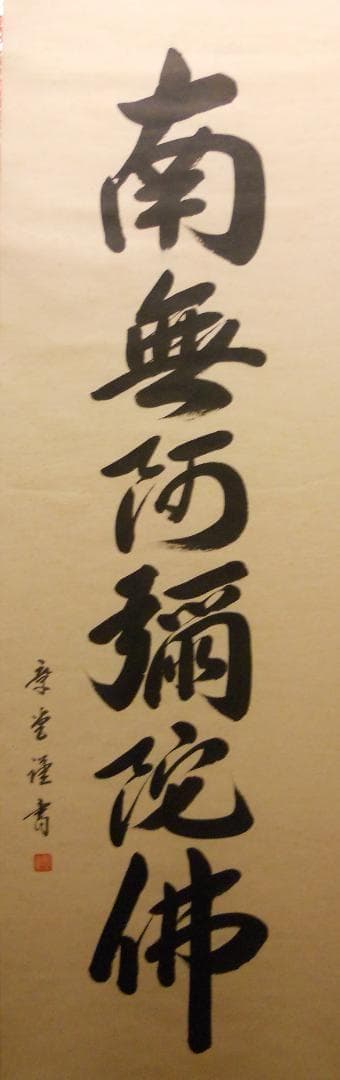 南無阿彌陀佛
堂謹書